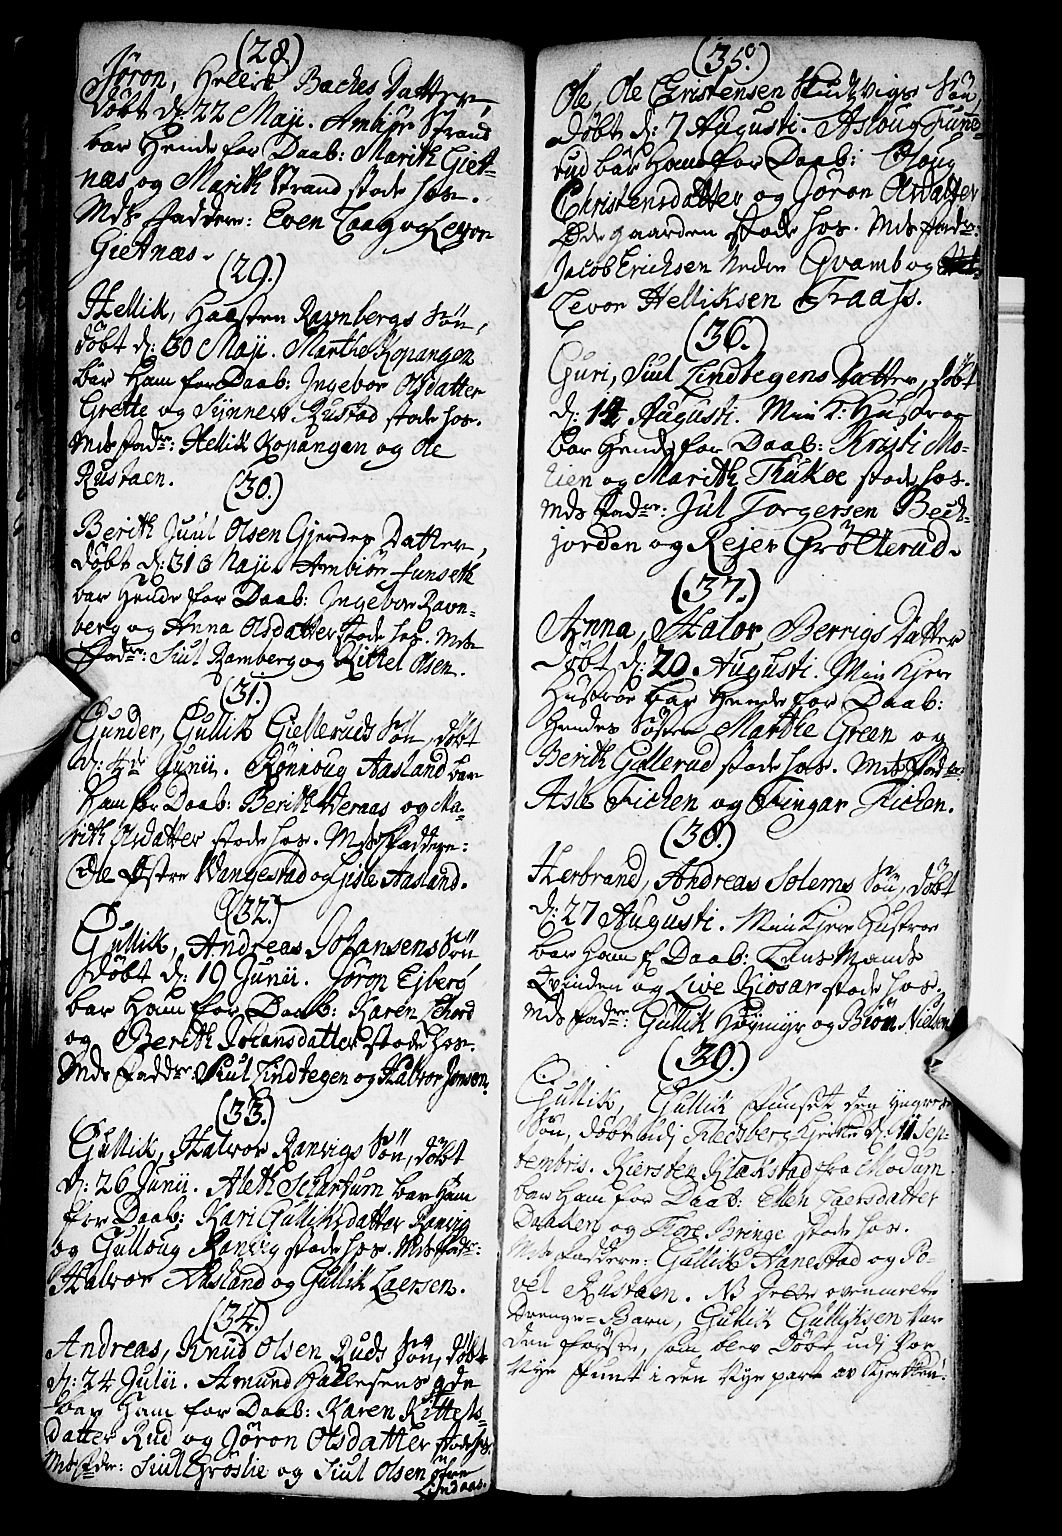 (28.)
Jøron, Hellik Backes Datter,
døbt d: 22 Maji. Ambiør Strand
bar Hende for Daab: Marith Giett-
næs og Marith Strand stode hos.
Mds faddere: Even Taag og Levor
Gietnæs.
(29.)
Hellik, Haagen Ravnbergs Søn,
døbt d: 30 Maji. Marthe Kopangen
bar Ham for Daab: Ingebor Olsdatter
Grette og Synnerv Rustad stode hos.
Mds fadr: Hellik Kopangen og Ole
Rustaen.
(30.)
Berith Juul Olsen Gjerdes Datter,
døbt d: 31 Maji. Ambiør Funseth
bar Hende for Daab: Ingebor Ravn-
berg og Anna Olsdatter stode hos. Mds
fadr: Siul Ramberg og Kittel Olsen.
(31.)
Gunder, Gullik Giellerud's Søn, døbt
d: 4de Junii. Rønnoug Aasland bar
Ham for Daab: Berith Wernaas og Ma-
rith Olsdatter stode hos. Mds Faddere:
Ole Østre Wangestad og Gisle Aasland.
(32.)
Gullik, Andreas Johansens Søn
døbt d: 19 Junii. Jøron Ejberg
bar Ham for Daab: Karen Schord
og Berith Johansdatter stode hos.
Mds Faddr: Siul Lindtegen og Halvor Jonsen.
(33.)
Gullik, Halvor Ranvigs Søn, døbt
d: 26 Junii. Aleth Schartum bar Ham
for Daab: Kari Gulliksdatter Ranvig
og Gulloug Ranvig stode hos. Mds fadr:
Halvor Aasland og Gullik Laersen.
(34.)
Andreas, Knud Olsen Ruds Søn, døbt
d: 24 Julii. Amund Hallesens
bar Ham for Daab: Karen Kittels-
datter Rud og Jøron Olsdatter stode hos.
Mds fdr: Siul Grøslie og Siul Olsen
Lindaas.
(35.)
Ole, Ole Christensen Skudtvigs Søn,
døbt d: 7 Augusti. Asloug Tune-
rud bar Ham for Daab: Oloug
Christensdatter og Jøron Olsdatter
Ødegaarden stode hos. Mds fadr:
Jacob Erichsen Nedre Gvamb og
Levor Helliksen Traass.
(36.)
Guri, Siul Lindtegens Datter, døbt
d: 14 Augusti. Min K: Hustroe
bar Hende for Daab: Kristi Mo-
lien og Marith Thukoe stode hos.
Mds fadr: Jul Torgersen Bech-
jorden og Rejer Grølterud.
(37.)
Anna, Halvor Berrigs Datter
døbt d: 20. Augusti. Min Kjere
Hustroe bar Hende for Daab:
Hendes Søster Marthe Green og
Berith Gullerud stode hos. Mds fadr:
Asle Fichen og Fingar Fichen.
(38.)
Herbrand, Andreas Solems Søn, døbt
d: 27 Augusti. Min Kjere Hustroe
bar Ham f. Daab: Lens Mands
Qvinden og Live Kiosar stode hos.
Mds fadr: Gullik Høymyr og Biøn Nielsen
(39.)
Gullik, Gullik Funset den yngres
Søn, døbt udj Flesberg Kjirke d: 11 Sep-
tembris. Kiersten Klækstad fra Modum
bar Ham for Daab: Elleh Laersdatter
Daaken og Tore Bringe stode hos.
Mds faddere: Gullik Hanestad og Po-
vel Rustaen. NB Dette ovenmelte
Drenge-Barn, Gullik Gulliksen var
den første, som blev Døbt udi Vor
Nye Funt i den Nye part av Kjerken!